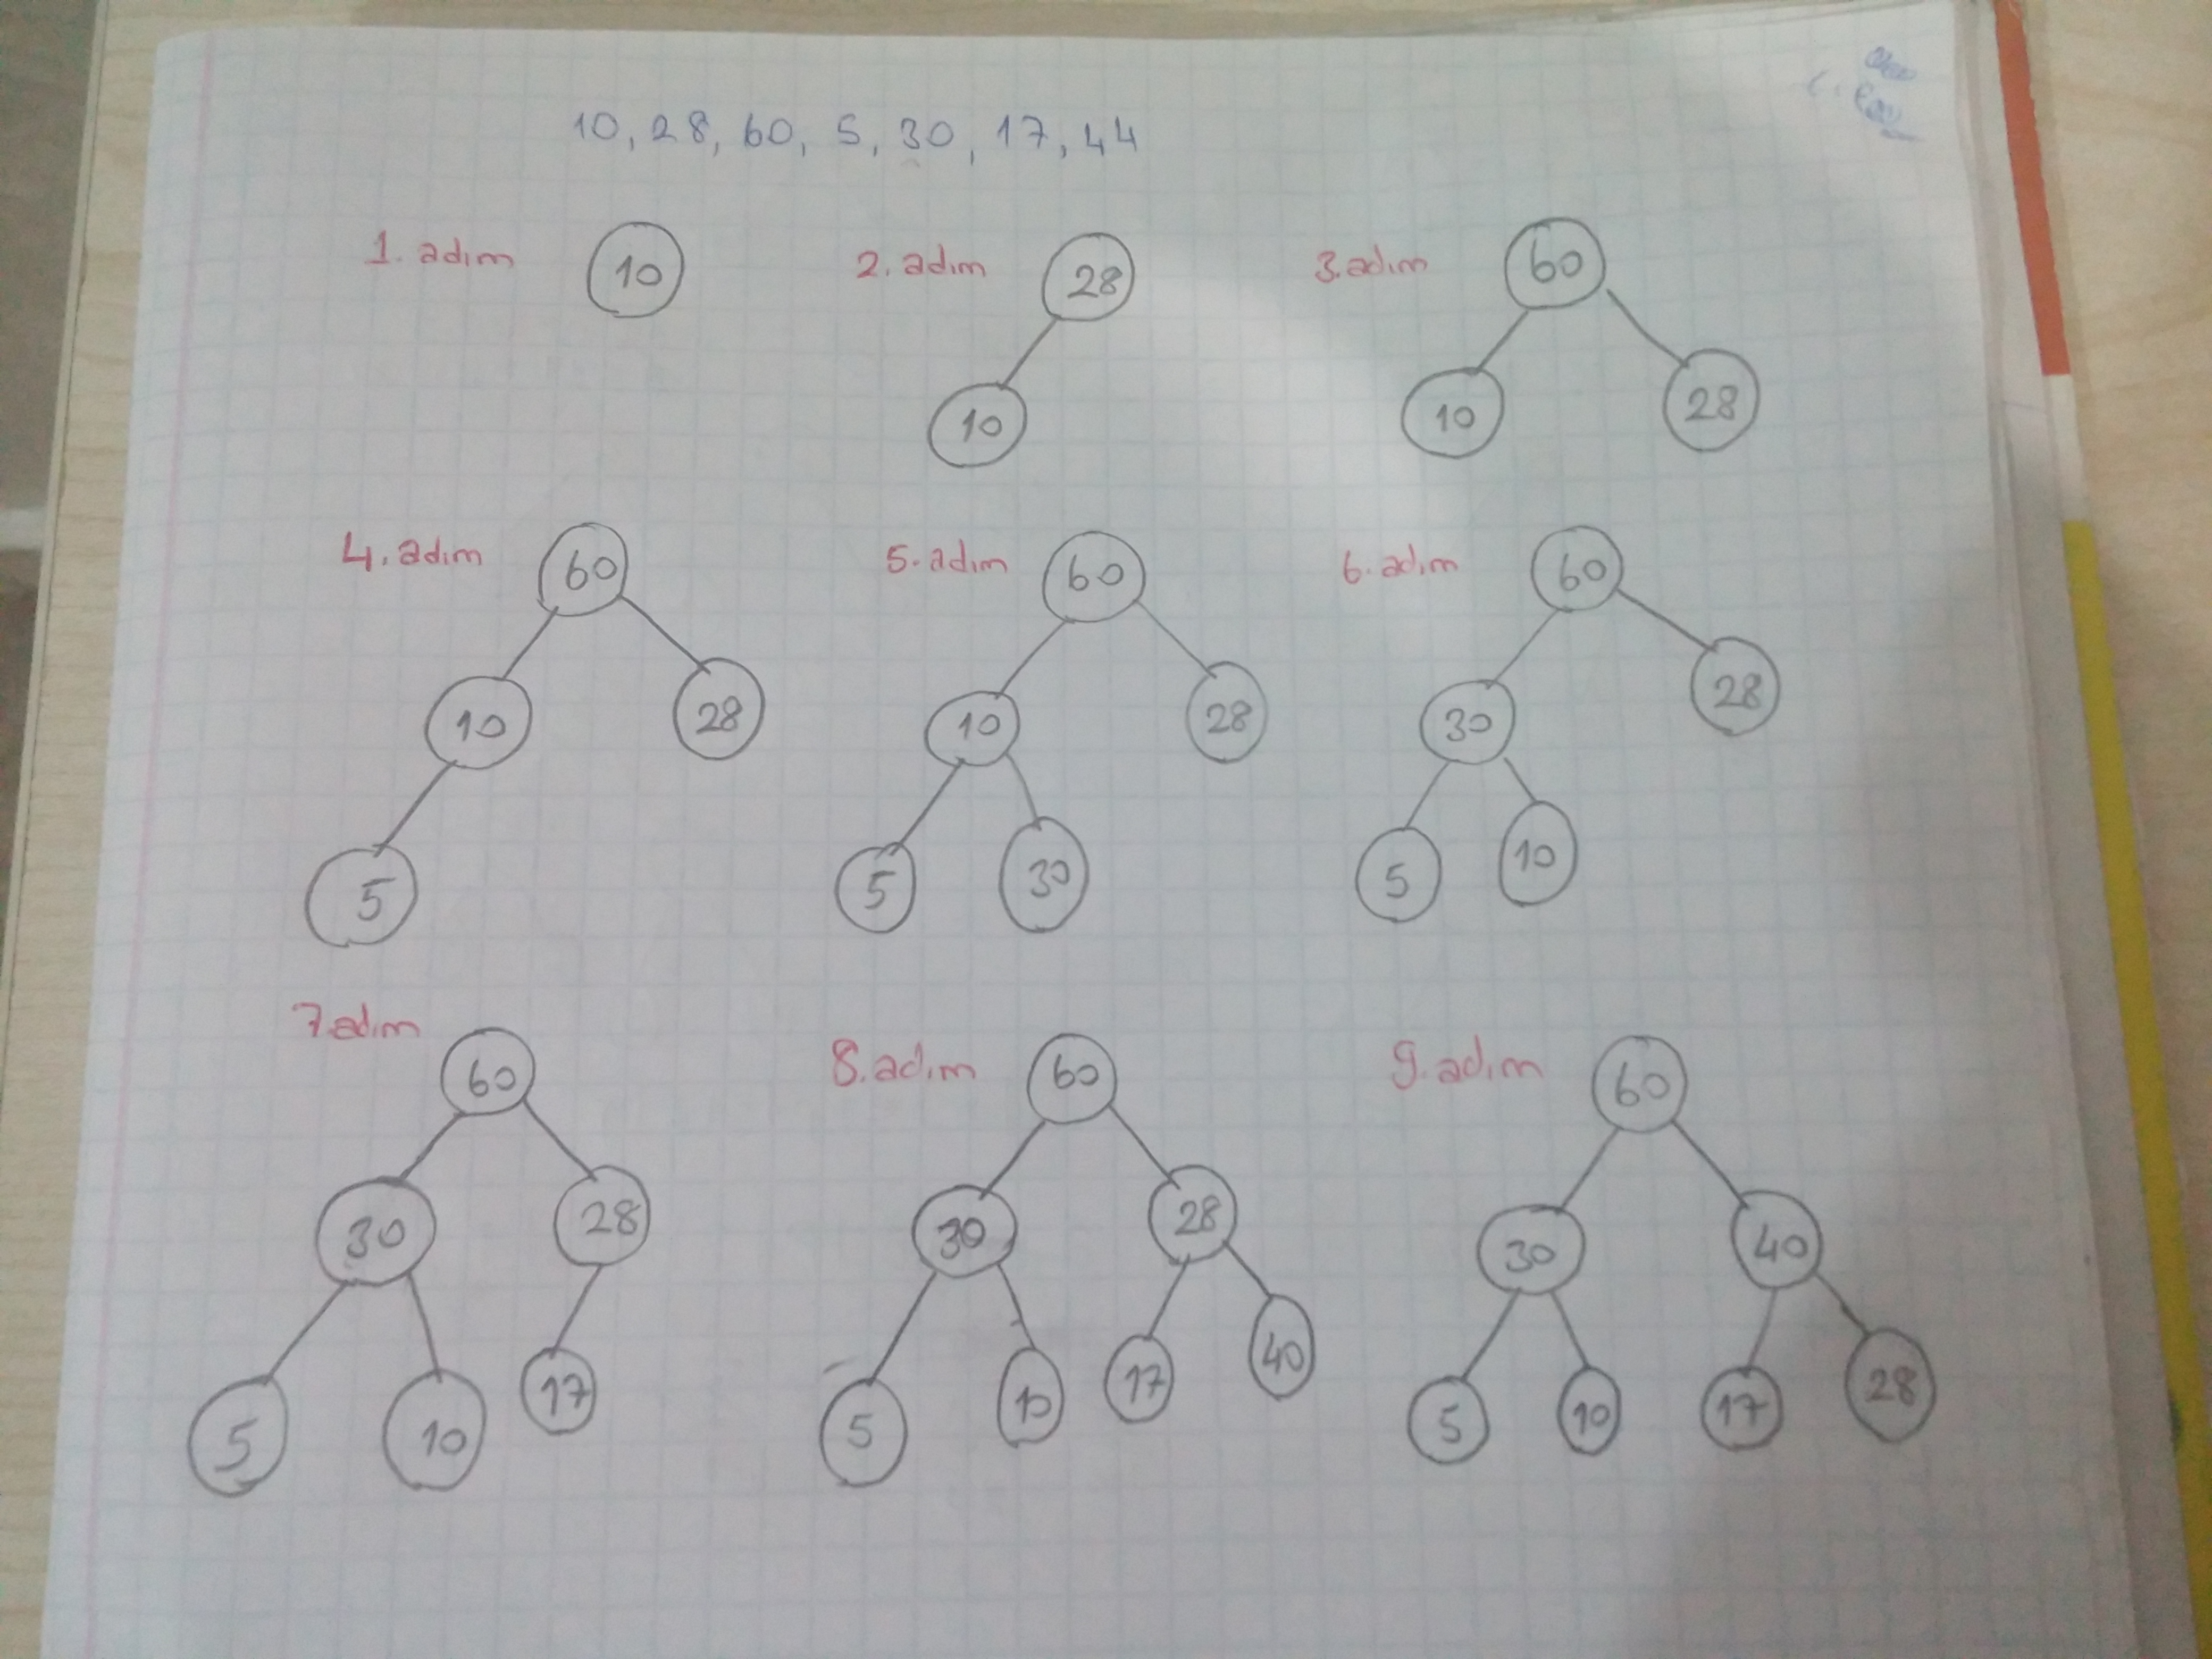 10, 28, 60, 5, 30, 17, 44
1. adım
10
2. adım
28
10
3. adım
60
10 28
4. adım
60
10 28
5
5. adım
60
10 28
5 30
6. adım
60
30 28
5 10
7. adım
60
30 28
5 10 17
8. adım
60
30 28
5 10 17 40
9. adım
60
30 40
5 10 17 28